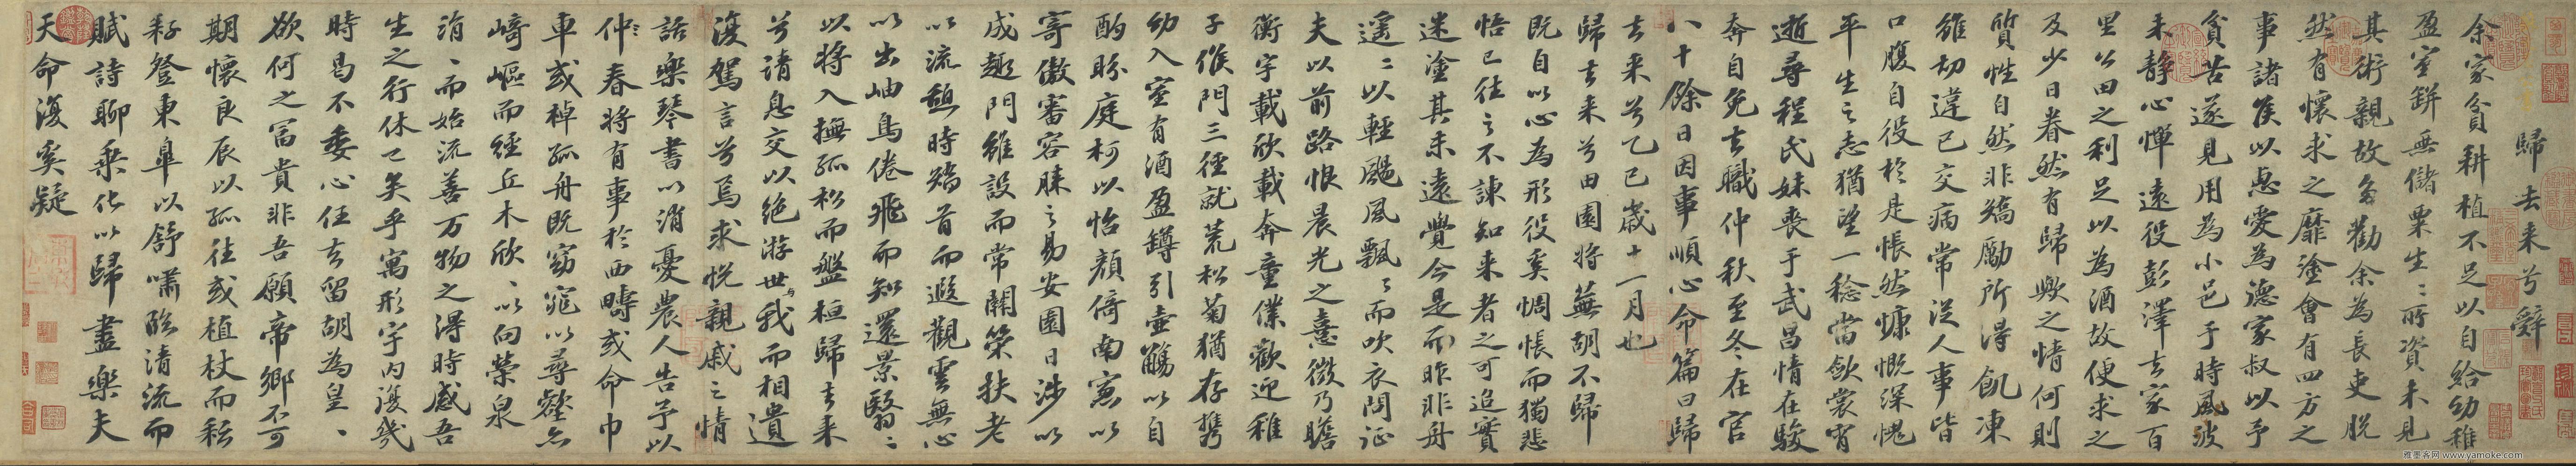 歸去来兮辭
余家貧耕植不足以自給幼稚
盈室缾無儲粟生〻所資未見
其術親故多勸余為長吏脫
然有懷求之靡塗會有四方之
事諸侯以惠愛為德家叔以予
貧苦遂見用為小邑于時風波
未静心憚遠役彭澤去家百
里公田之利足以為酒故便求之
及少日眷然有歸歟之情何則
質性自然非矯勵所得飢凍
雖切違己交病常從人事皆
口腹自役於是悵然慷慨深愧
平生之志猶望一稔當斂裳宵
逝尋程氏妹喪于武昌情在駿
奔自免去職仲秋至冬在官
八十餘日因事順心命篇曰歸
去来兮乙巳歲十一月也
歸去来兮田園將蕪胡不歸
既自以心為形役奚惆悵而獨悲
悟已往之不諫知来者之可追實
迷塗其未遠覺今是而昨非舟
遥〻以輕颺風飄〻而吹衣問征
夫以前路恨晨光之熹微乃瞻
衡宇載欣載奔童僕歡迎稚
子候門三徑就荒松菊猶存携
幼入室有酒盈罇引壺觴以自
酌眄庭柯以怡顏倚南窓以
寄傲審容膝之易安園日涉以
成趣門雖設而常關策扶老
以流憩時矯首而遐觀雲無心
以出岫鳥倦飛而知還景翳〻
以將入撫孤松而盤桓歸去来
兮請息交以絶游世與我而相遺
復駕言兮焉求悅親戚之情
話樂琴書以消憂農人告予以
仲春將有事於西疇或命巾
車或棹孤舟既窈窕以尋壑亦
崎嶇而經丘木欣〻以向榮泉
涓〻而始流善万物之得時感吾
生之行休已矣乎寓形宇内復幾
時曷不委心任去留胡為皇〻
欲何之富貴非吾願帝鄉不可
期懷良辰以孤往或植杖而耘
耔登東皐以舒嘯臨清流而
賦詩聊乘化以歸盡樂夫
天命復奚疑
雅墨客网 www.yamoke.com